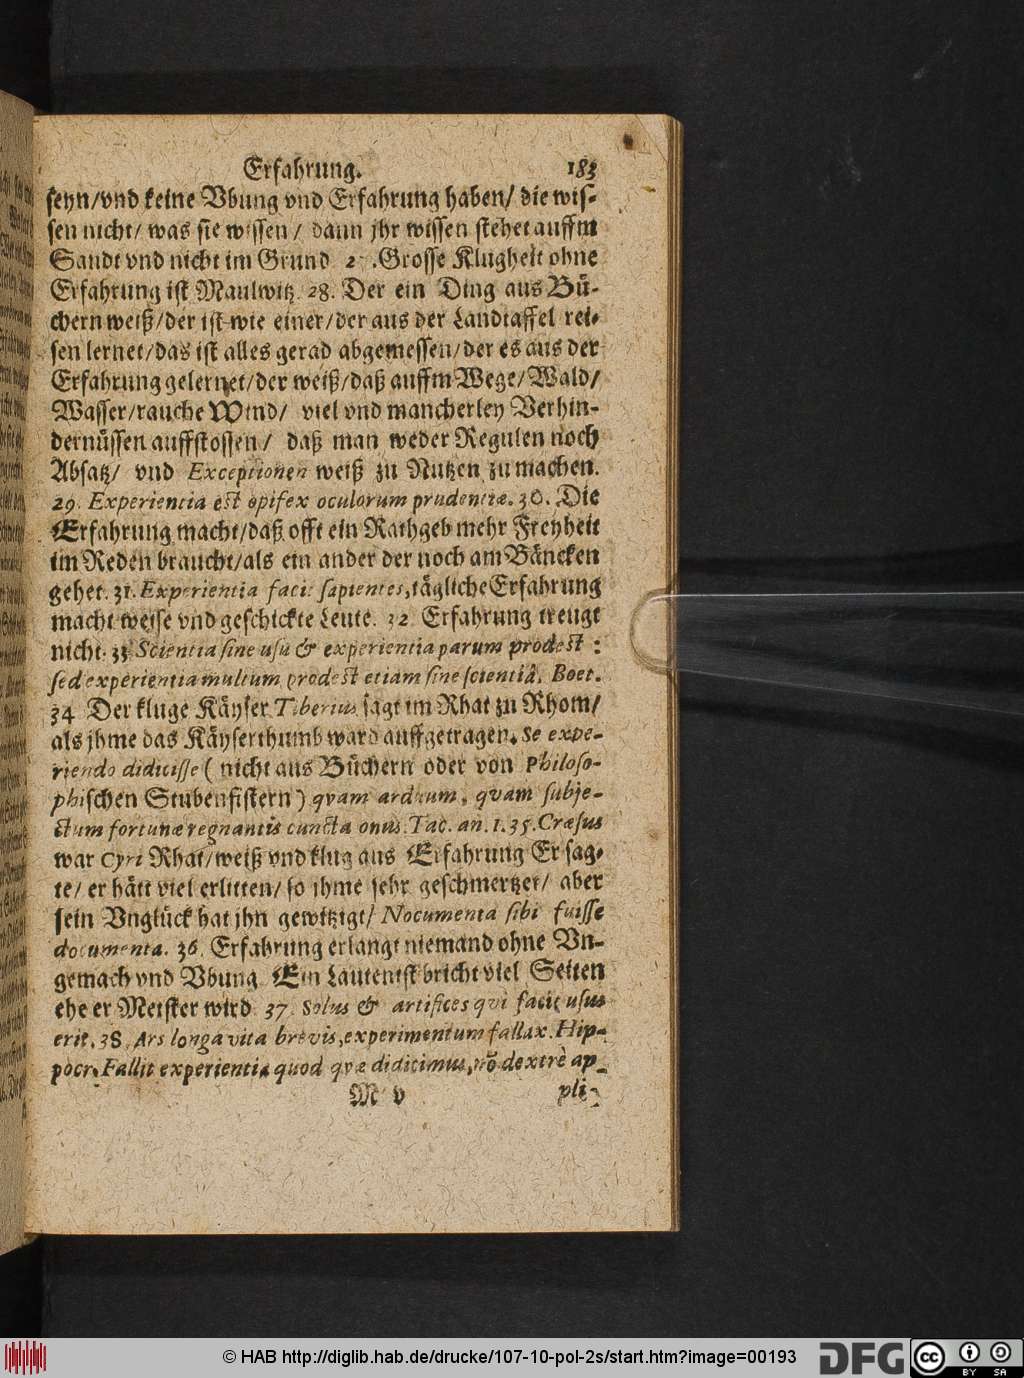 Erfahrung. 183
seyn/vnd keine Vbung vnd Erfahrung haben/ die wis-
sen nicht/ was sie wissen / dann jhr wissen stehet auffm
Sandt vnd nicht im Grund 2 .Grosse Klugheit ohne
Erfahrung ist Maulwitz. 28. Der ein Ding aus Bü-
chern weiß/der ist wie einer/der aus der Landtaffel rei-
sen lernet/das ist alles gerad abgemessen/der es aus der
Erfahrung gelernet/der weiß/daß auffm Wege/Wald/
Wasser/rauche Wind/ viel vnd mancherley Verhin-
dernüssen auffstossen / daß man weder Regulen noch
Absatz/ vnd Exceptionen weiß zu Nutzen zu machen.
29. Experientia est opifex oculorum prudentiæ. 30. Die
Erfahrung macht/daß offt ein Rathgeb mehr Freyheit
im Reden braucht/als ein ander der noch am Bäncken
gehet. 31. Experientia facit sapientes, tägliche Erfahrung
macht weise vnd geschickte Leute. 32 Erfahrung treugt
nicht. 33 Scientia sine usu & experientia parum prodest :
sed experientia multum prodest etiam sine scientiâ. Boet.
34 Der kluge Käyser Tiberius sagt im Rhat zu Rhom/
als jhme das Käyserthumb ward auffgetragen. Se expe-
riendo didicisse ( nicht aus Büchern oder von Philoso-
phischen Stubenfistern ) qvam arduum, qvam subje-
ctum fortunæ regnantis cuncta onus. Tac. an. 1. 35. Cræsus
war Cyri Rhat/weiß vnd klug aus Erfahrung Er sag-
te/ er hätt viel erlitten/ so jhme sehr geschmertzet/ aber
sein Vnglück hat jhn gewitzigt/ Nocumenta sibi fuisse
documenta. 36. Erfahrung erlangt niemand ohne Vn-
gemach vnd Vbung. Ein Lautenist bricht viel Seiten
ehe er Meister wird 37. Solus & artifices qvi facit usus
erit. 38. Ars longa vita brevis, experimentum fallax. Hip-
pocr. Fallit experientia quod qvæ didicimus, nõ dextrè ap-
M v pli-
© HAB http://diglib.hab.de/drucke/107-10-pol-2s/start.htm?image=00193
DFG
cc
BY SA